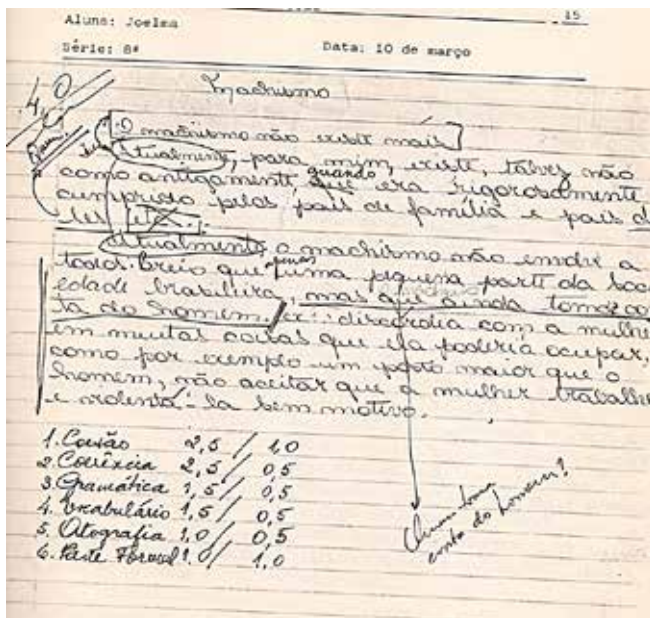 15
Aluna: Joelma
Série: 8ª Data: 10 de março
Machismo
4,0
O machismo não existe mais
Atualmente, para mim, existe, talvez não
como antigamente, quando que era rigorosamente
cumprido pelos pais de família e pais d
Atualmente, o machismo não envolve a
todos. Creio que apenas uma pequena parte da soci
edade brasileira, mas que ainda toma con
ta do homem. ex: discórdia com a mulhe
em muitas coisas que ela poderia ocupar,
como por exemplo um posto maior que o
homem, não aceitar que a mulher trabalhe
e violentá-la sem motivo.
1. Coesão 2,5 / 1,0
2. Coerência 2,5 / 0,5
3. Gramática 1,5 / 0,5
4. Vocabulário 1,5 / 0,5
5. Otografia 1,0 / 0,5
6. Parte Formal 1,0 / 1,0
Quem toma
conta do homem?